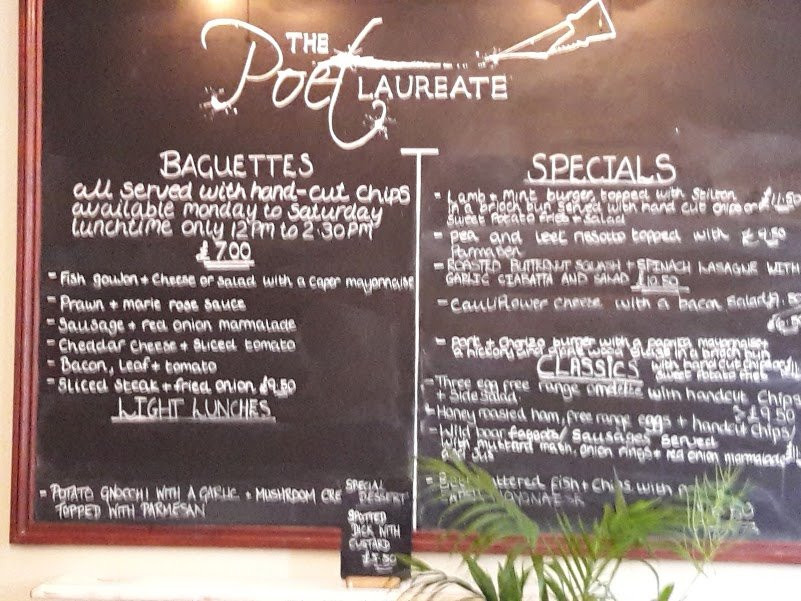 THE
Poet
LAUREATE
BAGUETTES
all served with hand-cut chips
available monday to Saturday
lunchtime only 12pm to 2.30pm
£7.00
- Fish goujon + cheese or salad with a caper mayonnaise
- Prawn + marie rose sauce
- Sausage + red onion marmalade
- Cheddar cheese + sliced tomato
- Bacon, Leaf + tomato
- Sliced steak + fried onion £9.50
LIGHT LUNCHES
- POTATO GNOCCHI WITH A GARLIC + MUSHROOM CRE
TOPPED WITH PARMESAN
SPECIAL
DESSERT
SPOTTED
DICK WITH
CUSTARD
£5.50
SPECIALS
- Lamb + Mint burger topped with Stilton £11.50
in a brioch bun served with hand cut chips or
sweet potato fries + Salad
- pea and leek rissotto topped with £9.50
Parmasen
- ROASTED BUTTERNUT SQUASH + SPINACH LASAGNE WITH
GARLIC CIABATTA AND SALAD £10.50
- Cauliflower cheese with a bacon salad
- Pork + Chorizo burger with a paprika mayonnaise
in a brioch bun
with hand cut chips or
sweet potato fries
CLASSICS
- Three egg free range omelette with handcut chips
+ Side salad £9.50
- Honey roasted ham, free range eggs + handcut chips
- Wild boar faggots/ Sausages served
with mustard mash, onion rings + red onion marmalade
and jus
battered fish + chips with